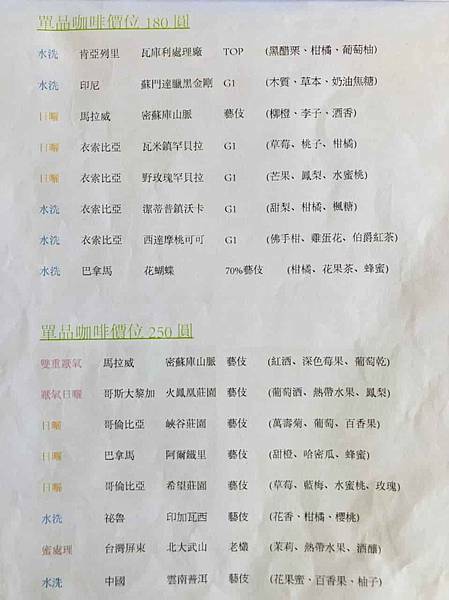 單品咖啡價位 180 圓
水洗 肯亞列里 瓦庫利處理廠 TOP (黑醋栗、柑橘、葡萄柚)
水洗 印尼 蘇門達臘黑金剛 G1 (木質、草本、奶油焦糖)
日曬 馬拉威 密蘇庫山脈 藝伎 (柳橙、李子、酒香)
日曬 衣索比亞 瓦米鎮罕貝拉 G1 (草莓、桃子、柑橘)
日曬 衣索比亞 野玫瑰罕貝拉 G1 (芒果、鳳梨、水蜜桃)
水洗 衣索比亞 潔蒂普鎮沃卡 G1 (甜梨、柑橘、楓糖)
水洗 衣索比亞 西達摩桃可可 G1 (佛手柑、雞蛋花、伯爵紅茶)
水洗 巴拿馬 花蝴蝶 70%藝伎 (柑橘、花果茶、蜂蜜)
單品咖啡價位 250 圓
雙重厭氧 馬拉威 密蘇庫山脈 藝伎 (紅酒、深色莓果、葡萄乾)
厭氧日曬 哥斯大黎加 火鳳凰莊園 藝伎 (葡萄酒、熱帶水果、鳳梨)
日曬 哥倫比亞 峽谷莊園 藝伎 (萬壽菊、葡萄、百香果)
日曬 巴拿馬 阿爾鐵里 藝伎 (甜橙、哈密瓜、蜂蜜)
日曬 哥倫比亞 希望莊園 藝伎 (草莓、藍梅、水蜜桃、玫瑰)
水洗 祕魯 印加瓦西 藝伎 (花香、柑橘、櫻桃)
蜜處理 台灣屏東 北大武山 老欉 (茉莉、熱帶水果、酒釀)
水洗 中國 雲南普洱 藝伎 (花果蜜、百香果、柚子)